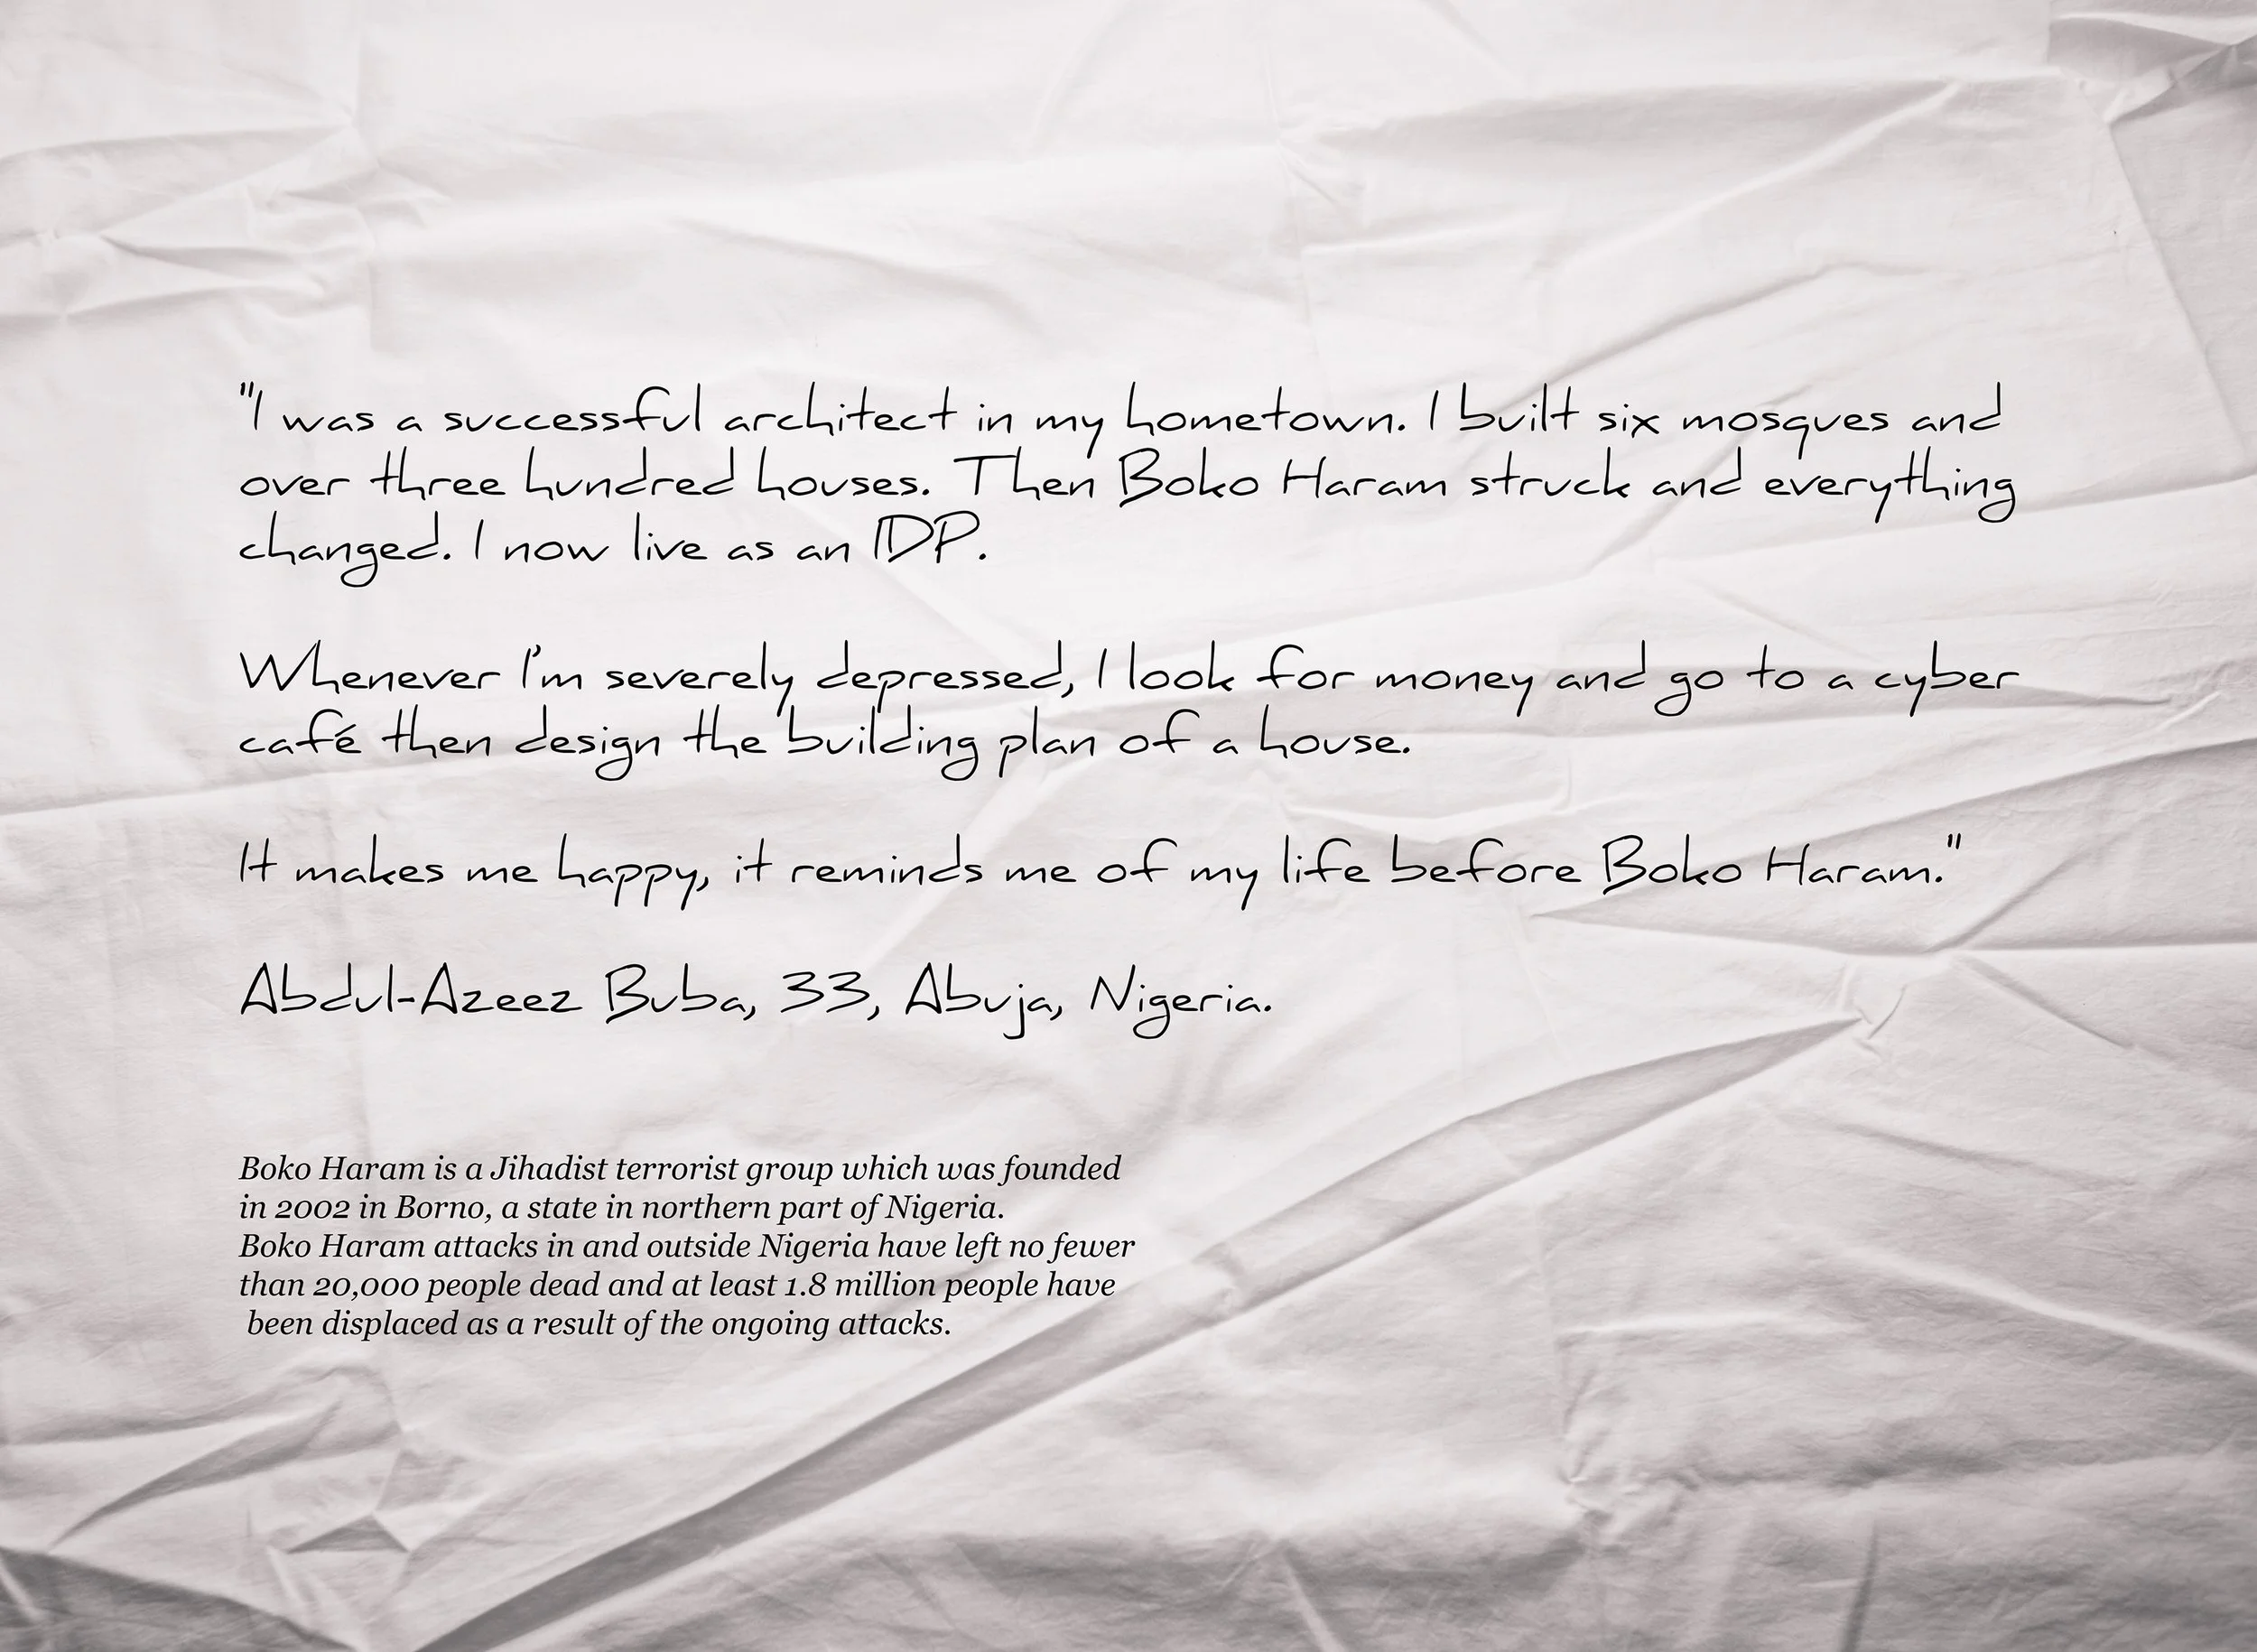 "I was a successful architect in my hometown. I built six mosques and
over three hundred houses. Then Boko Haram struck and everything
changed. I now live as an IDP.
Whenever I'm severely depressed, I look for money and go to a cyber
café then design the building plan of a house.
It makes me happy, it reminds me of my life before Boko Haram."
Abdul-Azeez Buba, 33, Abuja, Nigeria.
Boko Haram is a Jihadist terrorist group which was founded
in 2002 in Borno, a state in northern part of Nigeria.
Boko Haram attacks in and outside Nigeria have left no fewer
than 20,000 people dead and at least 1.8 million people have
been displaced as a result of the ongoing attacks.